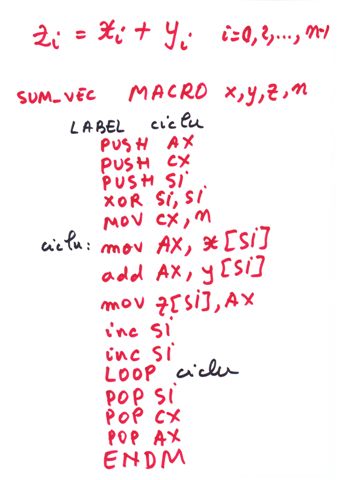 zi = xi + yi i=0,1,..., n-1
SUM_VEC MACRO x,y,z,n
LABEL ciclu
PUSH AX
PUSH CX
PUSH SI
XOR SI, SI
MOV CX, n
ciclu: mov AX, x[SI]
add AX, y[SI]
mov z[SI], AX
inc SI
inc SI
LOOP ciclu
POP SI
POP CX
POP AX
ENDM